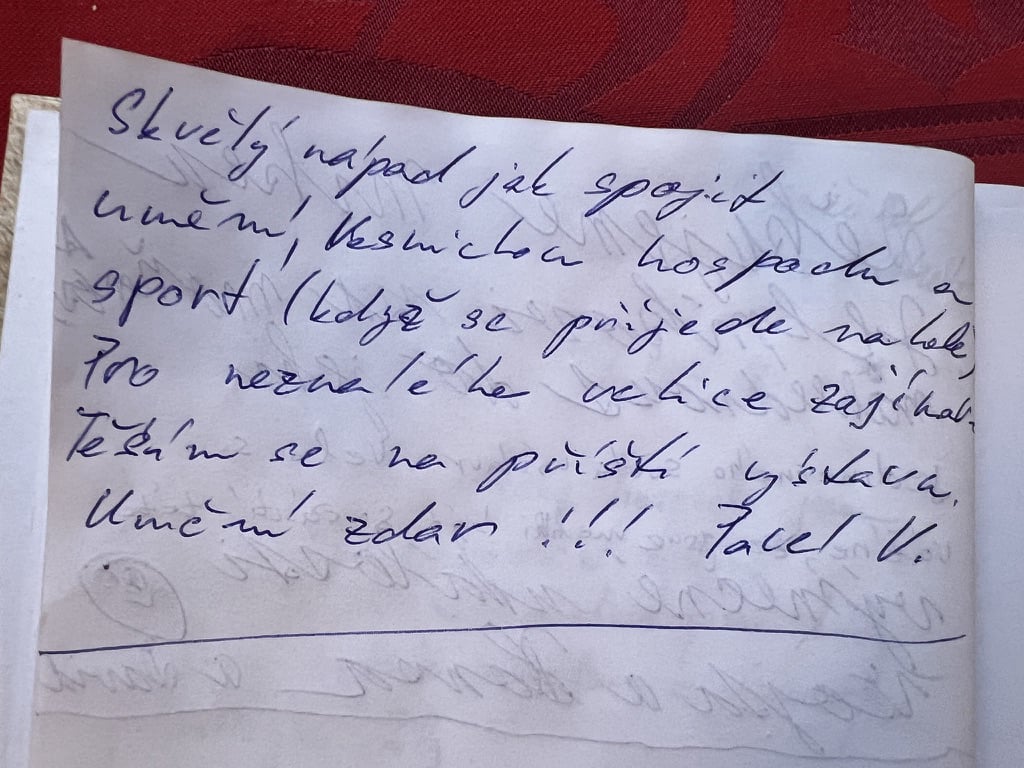 Skvělý nápad jak spojit
umění, Vesmírnou hospodu a
sport (když se přijede na kole)
Pro neznalého velice zajímav.
Těším se na příští výstavu.
Umění zdar !!! Pavel V.